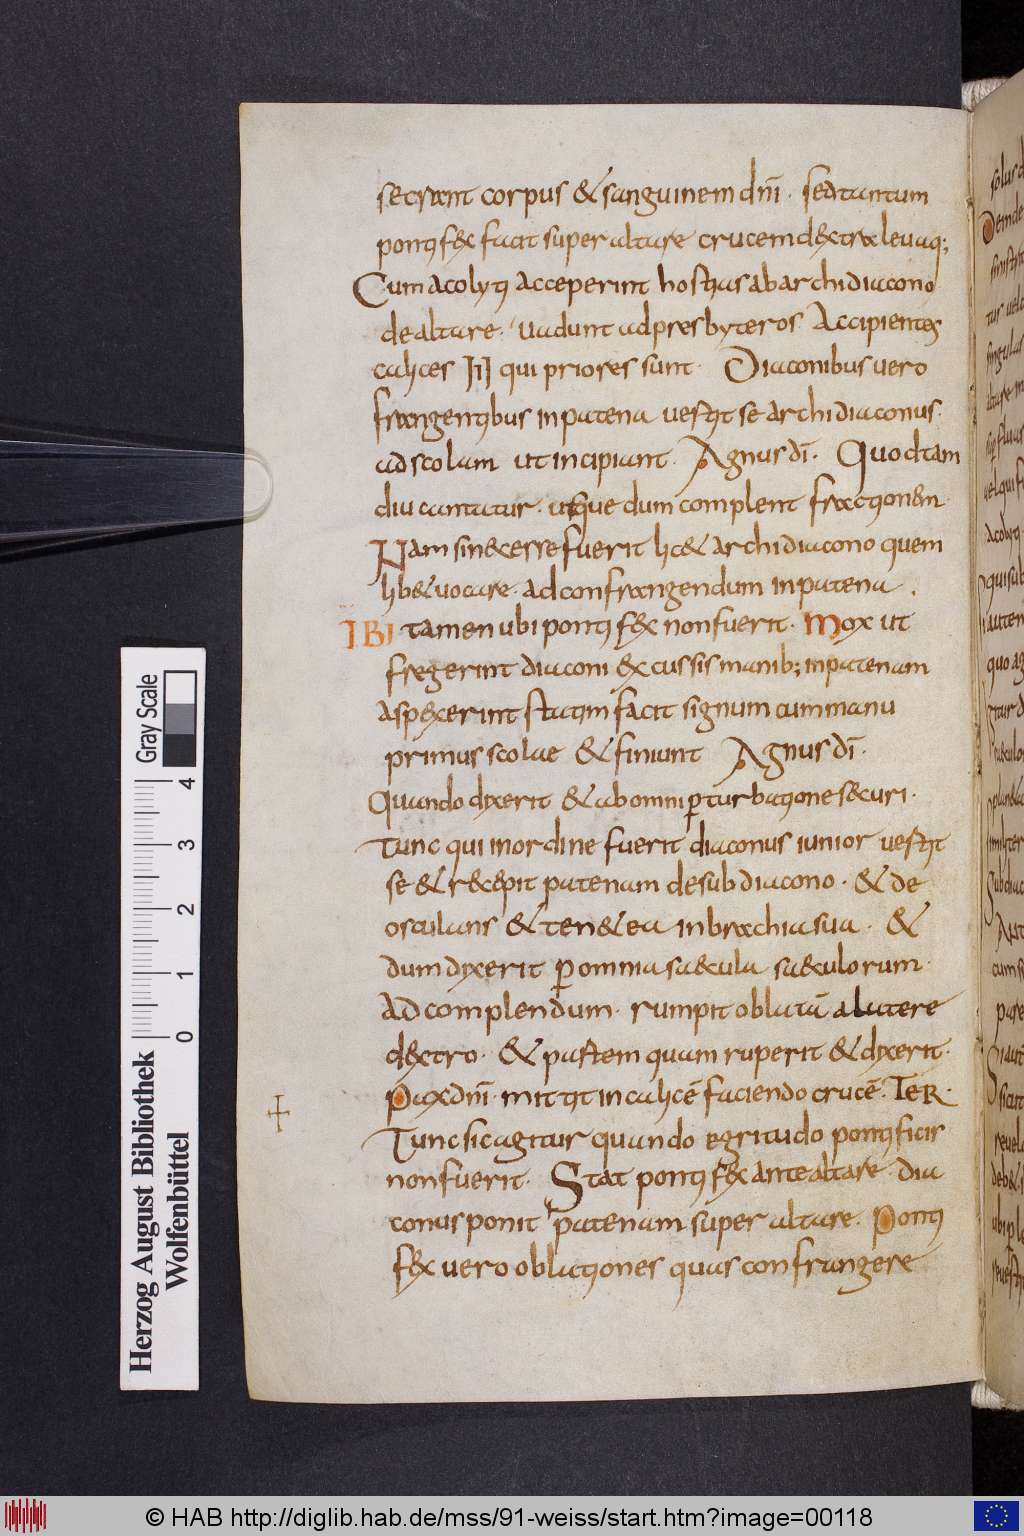 secrant corpus & sanguinem dnī. sed tantum
pontifex facit super altare crucem dextra levaq;
Cum acolyti acceperint hostias ab archidiacono
de altare. vadunt ad presbyteros. Accipientes
calices III qui priores sunt. Diaconibus vero
frangentibus in patena vestit se archidiaconus.
ad scolam ut incipiant. Agnus dī. Quod tam
diu cantatur. usque dum complent fractionem.
Nam si necesse fuerit lic& archidiacono quem
lib& vocare. ad confrangendum in patena.
IBI tamen ubi pontifex non fuerit. Mox ut
fregerint diaconi excussis manib; in patenam
aspexerint statim facit signum cum manu
primus scolae & finiunt Agnus dī.
Quando dyxerit & ab omni pturbatione securi.
Tunc qui in ordine fuerit diaconus iunior vestit
se & recepit patenam de subdiacono. & de
osculans & ten& ea in brachia sua. &
dum dyxerit p omnia saecula saeculorum.
Ad complendum. rumpit oblatā a latere
dextro. & partem quam ruperit & dyxerit.
Pax dnī. mittit in calicē faciendo crucē. TER.
Tunc sic agitur quando egritudo pontificis
non fuerit. Stat pontifex ante altare. dia
conus ponit patenam super altare. Ponti
fex vero oblationes quas confrangere
Gray Scale
4 3 2 1 0
Herzog August Bibliothek
Wolfenbüttel
© HAB http://diglib.hab.de/mss/91-weiss/start.htm?image=00118